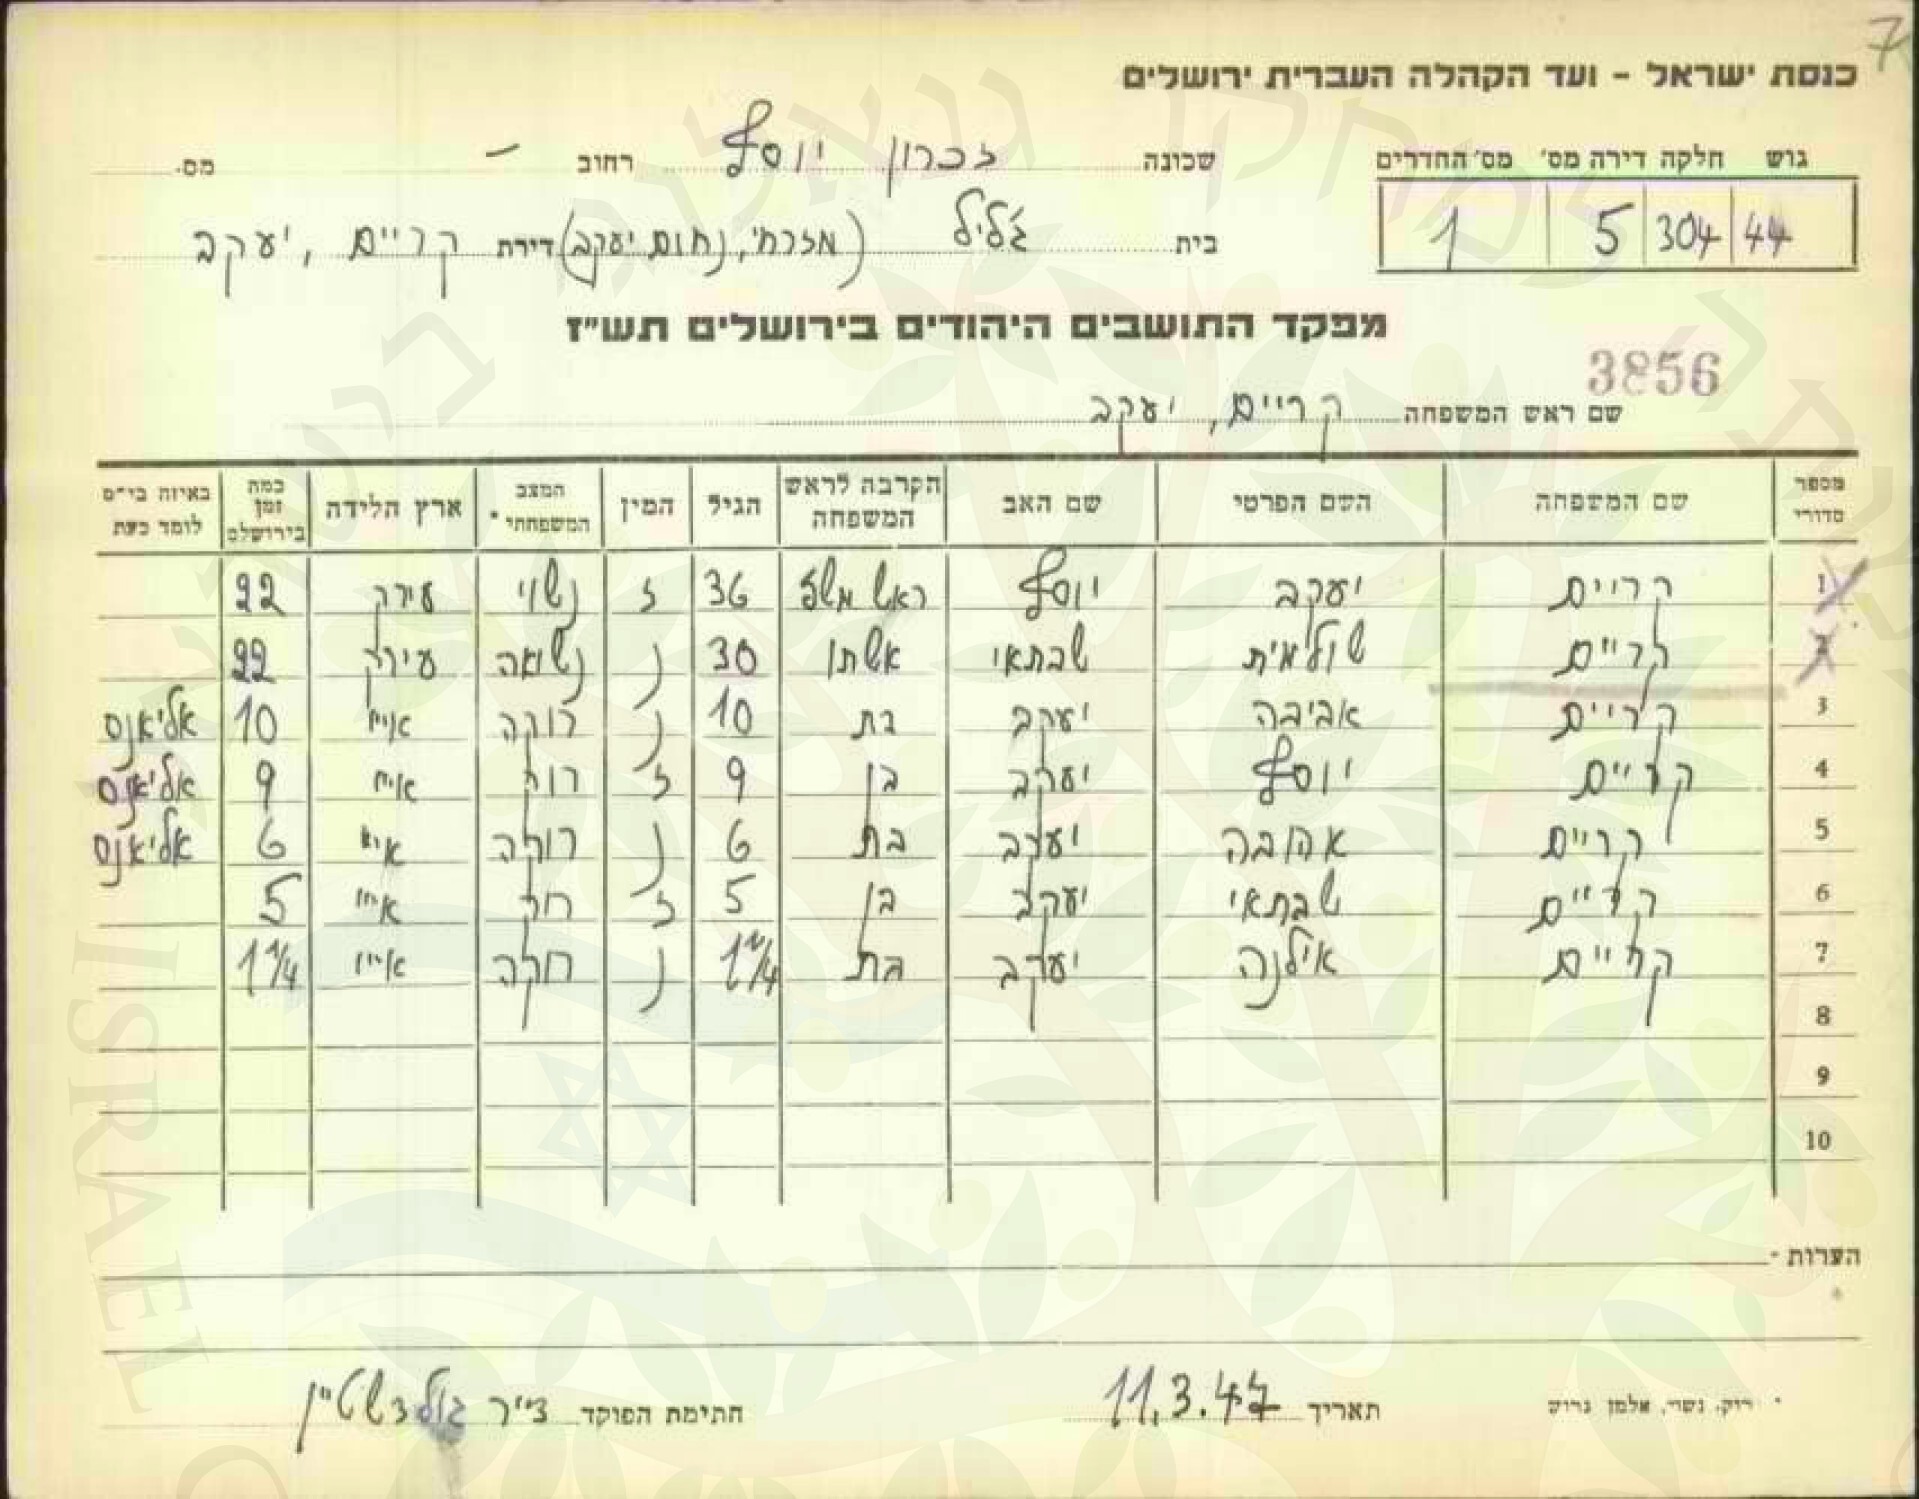 7
כנסת ישראל - ועד הקהלה העברית ירושלים
גוש חלקה דירה מס' מס' החדרים
44 304 5 1
שכונה זכרון יוסף רחוב - מס.
בית ג'ליל (אזרחי, נחום יעקב) דירת קריים, יעקב
מפקד התושבים היהודים בירושלים תש"ז
3856
שם ראש המשפחה קריים, יעקב
מספר סדורי שם המשפחה השם הפרטי שם האב הקרבה לראש המשפחה הגיל המין המצב המשפחתי * ארץ הלידה כמה זמן בירושלם באיזה בי"ס לומד כעת
1 קריים יעקב יוסף ראש משפ 36 ז נשוי עירק 22
2 קריים שולמית שבתאי אשתו 30 נ נשואה עירק 22
3 קריים אביבה יעקב בת 10 נ רוקה א"י 10 אליאנס
4 קריים יוסף יעקב בן 9 ז רוק א"י 9 אליאנס
5 קריים אהובה יעקב בת 6 נ רוקה א"י 6 אליאנס
6 קריים שבתאי יעקב בן 5 ז רוק א"י 5
7 קריים אילנה יעקב בת 1 1/4 נ רוקה א"י 1 1/4
8
9
10
הערות -
* רוק, נשוי, אלמן גרוש תאריך 11.3.47 חתימת הפוקד גולדשטיין
ISRAEL